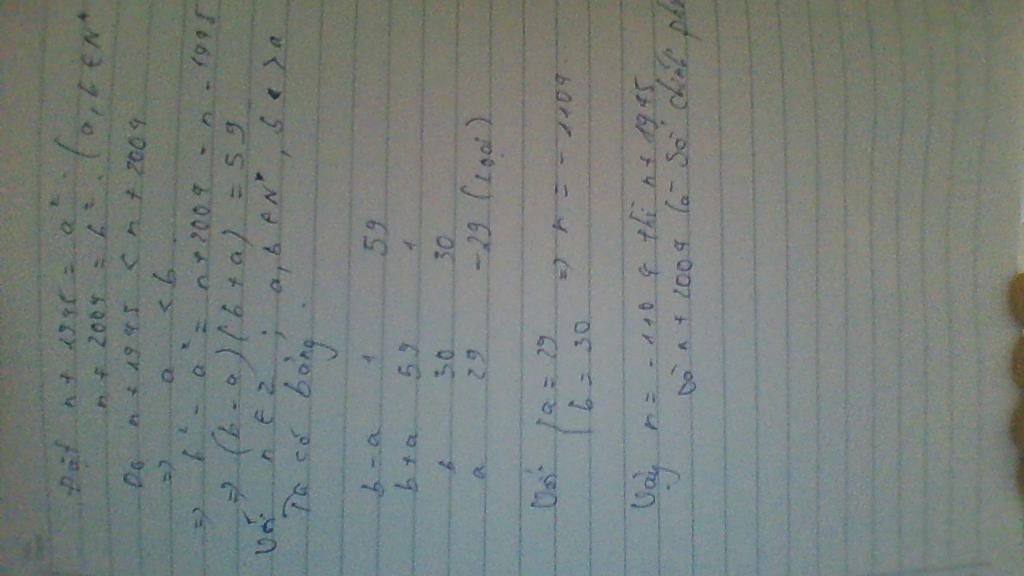 Đặt n + 1945 = a². (a, b ∈ N*
n + 2004 = b².
Do n + 1945 < n + 2004
=> a < b
=> b² - a² = n + 2004 - n - 1945
=> (b - a)(b + a) = 59
Với n ∈ Z ; a, b ∈ N*, b > a
Ta có bảng.
b - a 1 59
b + a 59 1
b 30 30
a 29 -29 (loại)
Với { a = 29
b = 30 => n = -1104.
Vậy n = -1104 thì n + 1945
và n + 2004 là số chính